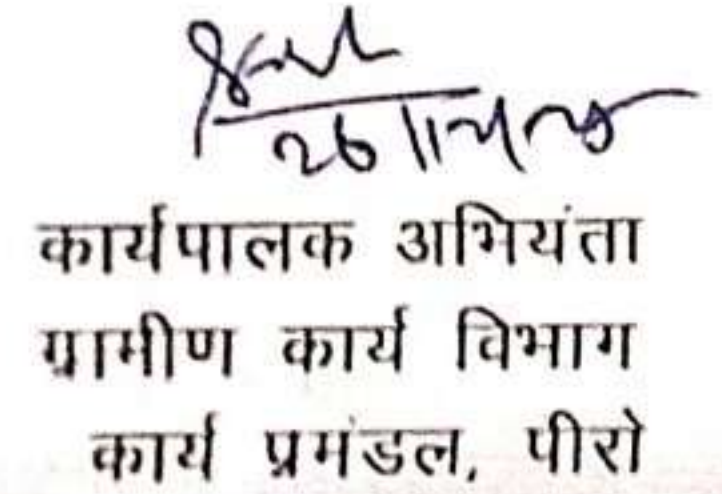 26
कार्यपालक अभियंता
ग्रामीण कार्य विभाग
कार्य प्रमंडल, पीरो